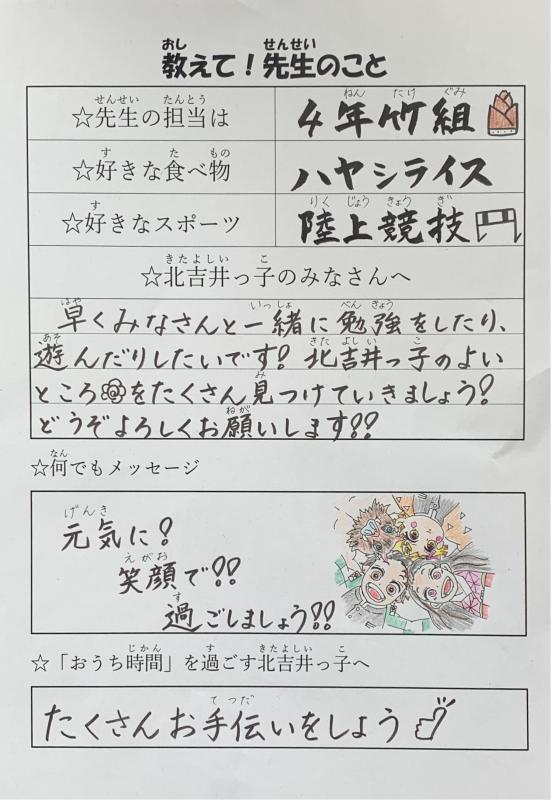 教えて！先生のこと
☆先生の担当は
４年竹組
☆好きな食べ物
ハヤシライス
☆好きなスポーツ
陸上競技
☆北吉井っ子のみなさんへ
早くみなさんと一緒に勉強をしたり、
遊んだりしたいです！北吉井っ子のよい
ところをたくさん見つけていきましょう！
どうぞよろしくお願いします!!
☆何でもメッセージ
元気に！
笑顔で!!
過ごしましょう!!
☆「おうち時間」を過ごす北吉井っ子へ
たくさんお手伝いをしよう